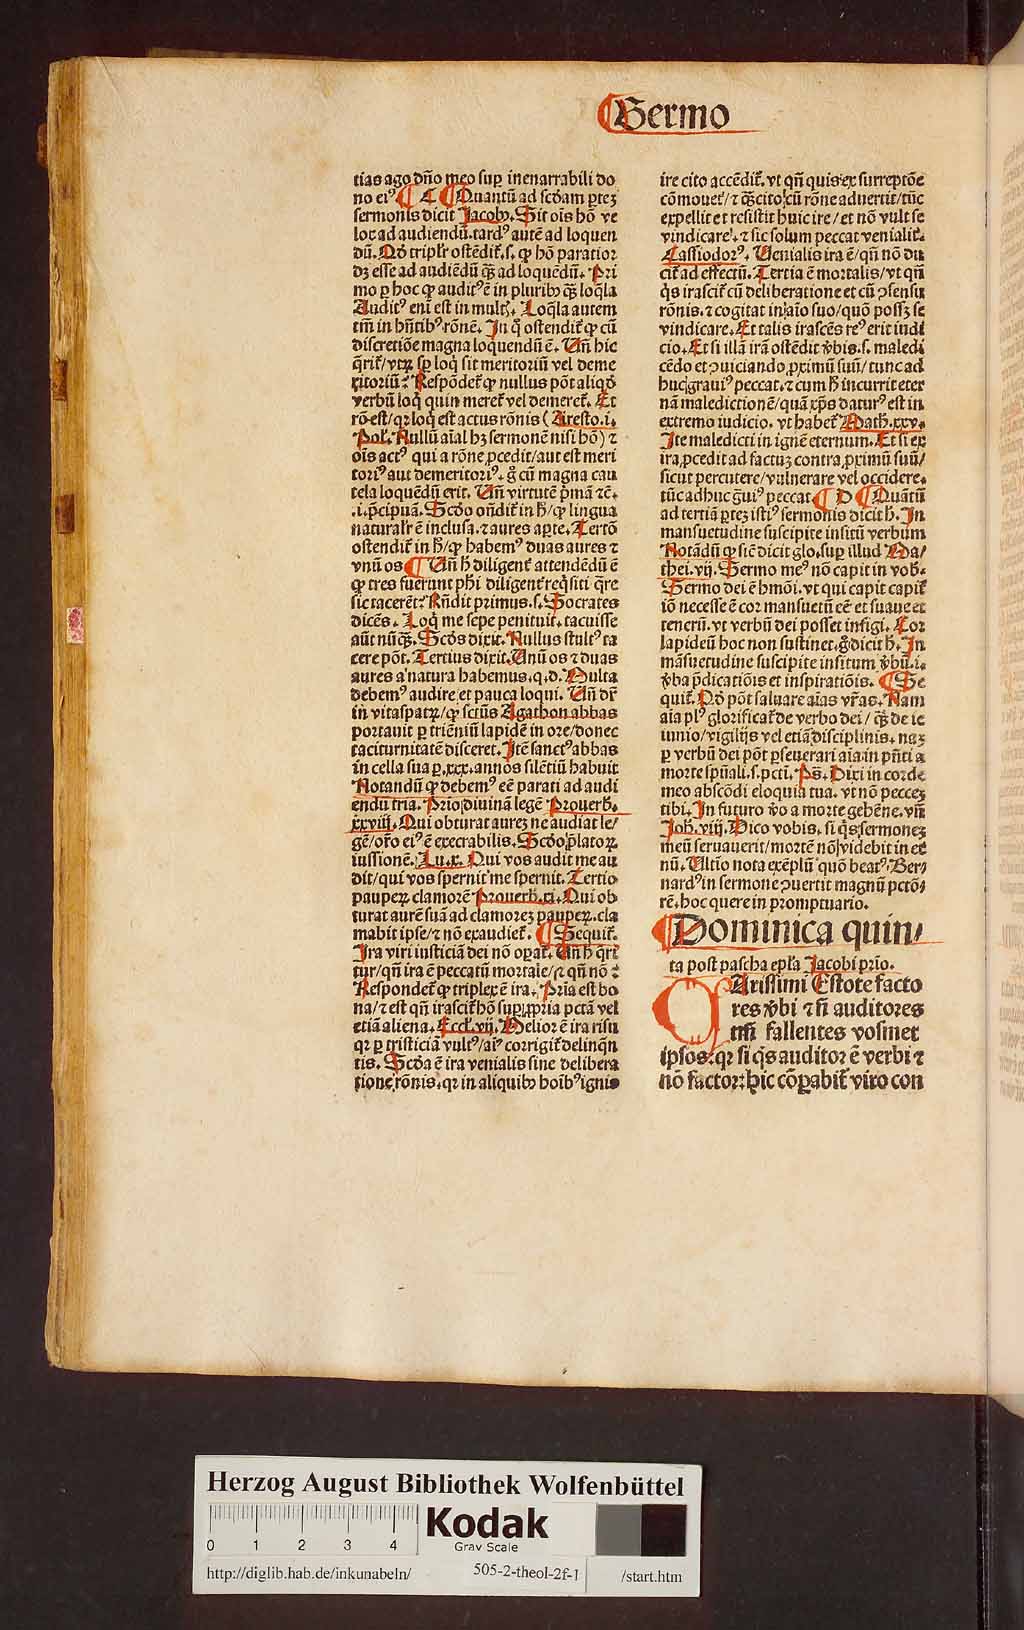 Sermo
tias ago dño meo sup inenarrabili do
no ei⁹ C Quantũ ad scđam ptez
sermonis dicit Jacob⁹. Sit oĩs hõ ve
lox ad audiendũ. tard⁹ autẽ ad loquen
dũ. Qđ triplr̃ ostẽdit̃. s. ꝙ hõ paratior
dz esse ad audiẽdũ q̃ꝫ ad loquẽdũ. Pri
mo p hoc ꝙ audit⁹ ẽ in plurib⁹ q̃ꝫ loq̃la
Audit⁹ eni est in mult̃. Loq̃la autem
tm̃ in hñtib⁹ rõnẽ. In q̊ ostendit̃ ꝙ cũ
discretiõe magna loquendũ ẽ. Uñ hic
q̃rit̃/vtrꝫ sp loq̇ sit meritoriũ vel deme
ritoriũ: Respõdet̃ ꝙ nullus põt aliqđ
verbũ loq̇ quin meret̃ vel demeret̃. Et
rõ est/qꝛ loq̇ est actus rõnis (Aresto. i.
Pol. Nullũ aĩal hꝫ sermonẽ nisi hõ) ⁊
oĩs act⁹ qui a rõne ꝓcedit/aut est meri
tori⁹ aut demeritori⁹. g̊ cũ magna cau
tela loquẽdũ erit. Uñ virtutẽ p̃mã ⁊c̃.
.i. p̃cipuã. Scđo oñdit̃ in h̃/ꝙ lingua
naturalr̃ ẽ inclusa. ⁊ aures apte. Tertõ
ostendit̃ in h̃/ꝙ habem⁹ duas aures ⁊
vnũ os Uñ h̃ diligent̃ attendẽdũ ẽ
ꝙ tres fuerunt phĩ diligent̃ req̇siti q̃re
sic tacerẽt: Rñdit primus. s. Socrates
dicẽs. Loq̇ me sepe penituit. tacuisse
aũt nũq̃ꝫ. Scđs dixit. Nullus stult⁹ ta
cere põt. Tertius dixit. Unũ os ⁊ duas
aures a natura habemus. q. d. Multa
debem⁹ audire et pauca loqui. Uñ dr̃
in vitaspatꝝ/ꝙ sctũs Agathon abbas
portauit p triẽniũ lapidẽ in ore/donec
taciturnitatẽ disceret. Itẽ sanct⁹ abbas
in cella sua p .xxx. annos silẽtiũ habuit
Notandũ ꝙ debem⁹ eẽ parati ad audi
endũ tria. Prio diuinã legẽ Prouerb̃.
xxviij. Qui obturat aurez ne audiat le/
gẽ/orõ ei⁹ ẽ execrabilis. Scđo p̃latoꝝ
iussionẽ. Lu. x. Qui vos audit me au
dit/qui vos spernit me spernit. Tertio
paupeꝝ clamorẽ Prouerb̃. xxi. Qui ob
turat aurẽ suã ad clamorez paupeꝝ. cla
mabit ipse/⁊ nõ exaudiet̃. Sequit̃.
Ira viri iusticiã dei nõ opat̃. Uñ h̃ q̃ri
tur/qñ ira ẽ peccatũ mortale/⁊ qñ nõ:
Respondet̃ ꝙ triplex ẽ ira. Pria est bo
na/⁊ est qñ irascit̃ hõ sup ꝓpria pctã vel
etiã aliena. Eccl̃. vij. Melior ẽ ira risu
qꝛ p tristiciã vult⁹/ai⁹ corrigit̃ delinq̃n
tis. Scđa ẽ ira venialis sine delibera
tione rõnis. qꝛ in aliquib⁹ hoĩb⁹ ignis
ire cito accẽdit̃. vt qñ quis ex surreptõe
cõmouet̃/⁊ q̃ꝫcito cũ rõne aduertit/tũc
expellit et resistit huic ire/et nõ vult se
vindicare. ⁊ sic solum peccat venialit̃.
Cassiodor⁹. Uenialis ira ẽ/qñ nõ du
cit̃ ad effectũ. Tertia ẽ mortalis/vt qñ
q̇s irascit̃ cũ deliberatione et cũ ꝯsensu
rõnis. ⁊ cogitat in aĩo suo/quõ possꝫ se
vindicare. Et talis irascẽs re⁹ erit iudi
cio. Et si illã irã ostẽdit v̾bis. s. maledi
cẽdo et ꝯuiciando ꝓximũ suũ/tunc ad
huc graui⁹ peccat. ⁊ cum h̃ incurrit eter
nã maledictionẽ/quã xp̃s datur⁹ est in
extremo iudicio. vt habet̃ Math. xxv.
Ite maledicti in ignẽ eternum. Et si ex
ira ꝓcedit ad factuz contra ꝓximũ suũ/
sicut percutere/vulnerare vel occidere.
tũc adhuc g̃ui⁹ peccat D Quãtũ
ad tertiã ptez isti⁹ sermonis dicit h̃. In
mansuetudine suscipite insitũ verbum
Notãdũ ꝙ sic̃ dicit glo. sup illud Ma/
thei. vij. Sermo me⁹ non capit in vob̃.
Sermo dei ẽ hmõi. vt qui capit capit̃
iõ necesse ẽ cor mansuetũ eẽ et suaue et
tenerũ. vt verbũ dei posset infigi. Cor
lapideũ hoc non sustinet. g̊ dicit h̃. In
mãsuetudine suscipite insitum v̾bũ. i.
v̾ba p̃dicatiõis et inspiratiõis. Se
quit̃. Qđ põt saluare aĩas vr̃as. Nam
aĩa pl⁹ glorificat̃ de verbo dei/q̃ꝫ de ie
iunio/vigilijs vel etiã disciplinis. naꝫ
p verbũ dei põt pseuerari aĩa in pñti a
morte spũali. s. pctĩ. Ps̃. Dixi in corde
meo abscõdi eloquia tua. vt nõ peccez
tibi. In futuro v̾o a morte gehẽne. vñ
Joh̃. viij. Dico vobis. si q̇s sermonez
meũ seruauerit/mortẽ nõ videbit in et̾
nũ. Ultĩo nota exẽplũ quõ beat⁹ Ber
nard⁹ in sermone ꝯuertit magnũ pctõ/
rẽ. hoc quere in promptuario.
Dominica quin/
ta post pascha epl̃a Jacobi prĩo.
CArissimi Estote facto
res v̾bi ⁊ nõ auditores
tm̃ fallentes vosmet
ipsos. qꝛ si q̇s auditor ẽ verbi ⁊
nõ factor: hic cõpabit̃ viro con
Herzog August Bibliothek Wolfenbüttel
0 1 2 3 4
Kodak
Gray Scale
http://diglib.hab.de/inkunabeln/ 505-2-theol-2f-1 /start.htm